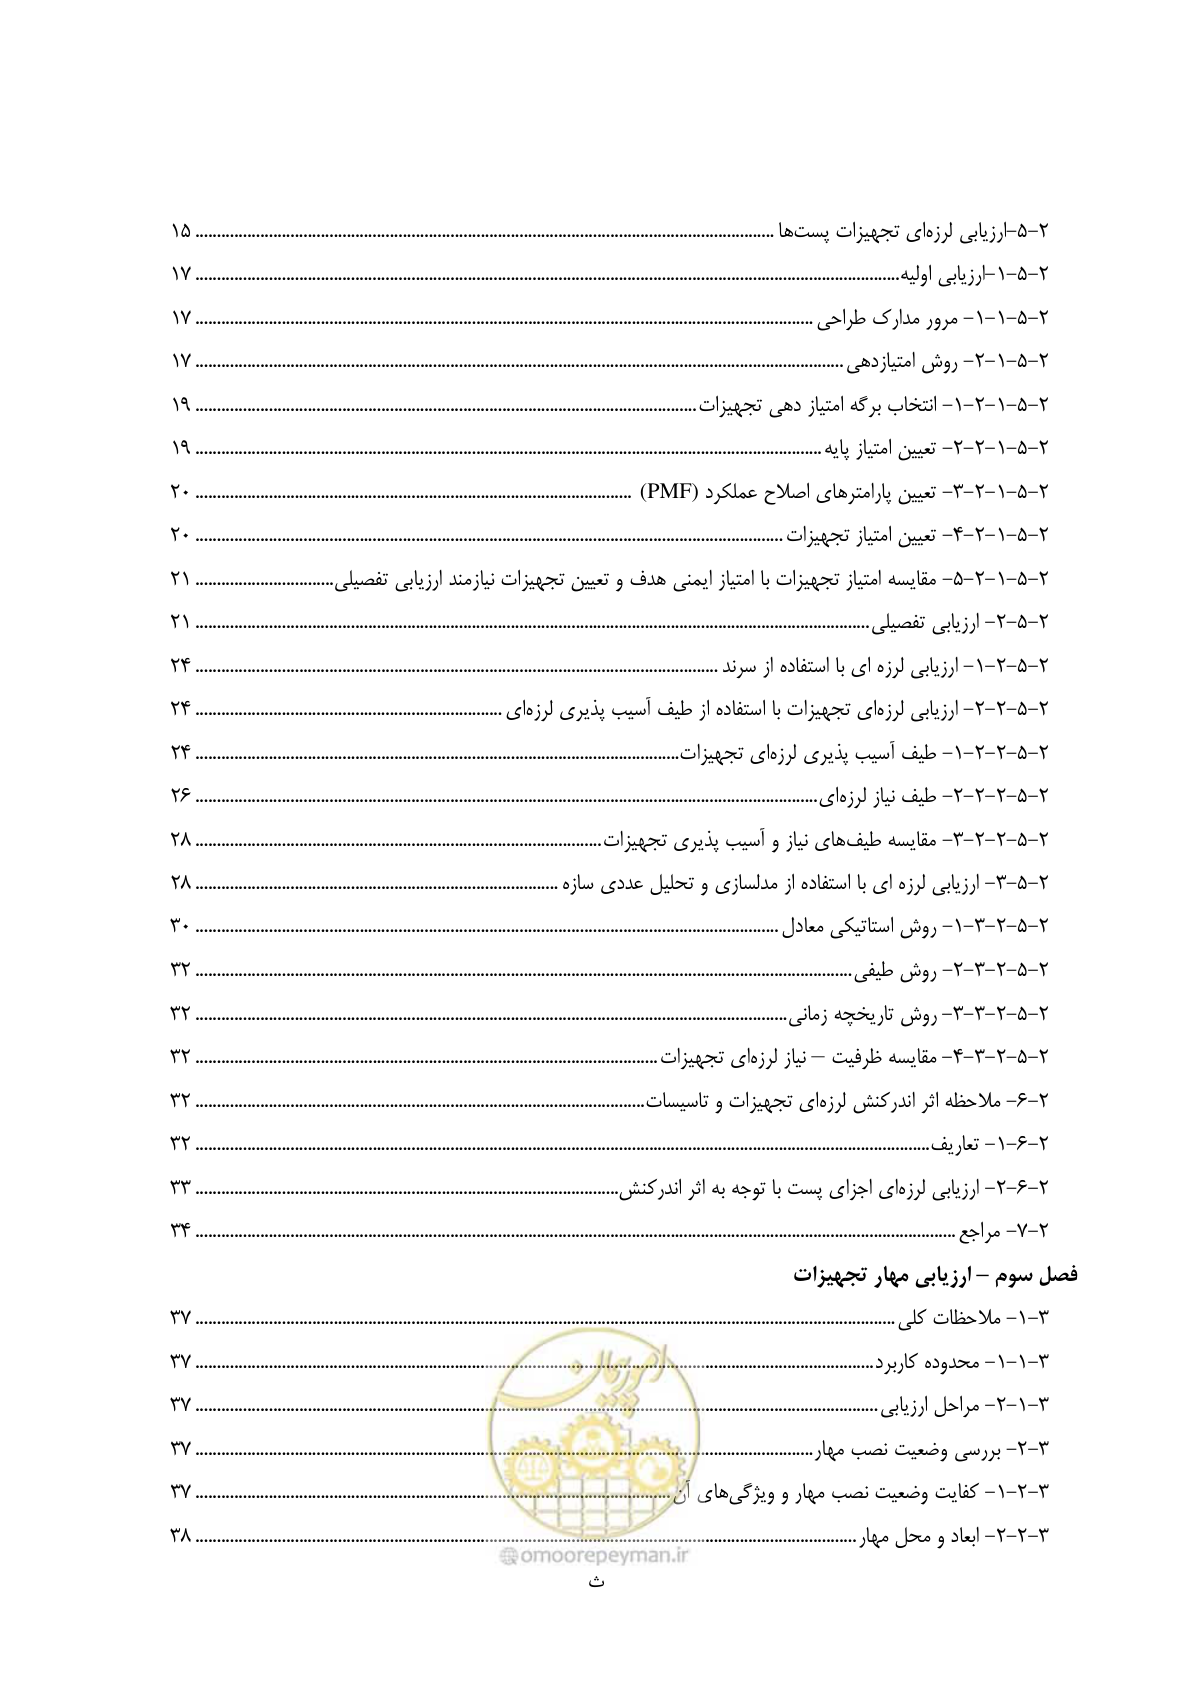 ۲-۵-ارزیابی لرزه‌ای تجهیزات پست‌ها ........ ۱۵
۲-۵-۱-ارزیابی اولیه ........ ۱۷
۲-۵-۱-۱- مرور مدارک طراحی ........ ۱۷
۲-۵-۱-۲- روش امتیازدهی ........ ۱۷
۲-۵-۱-۲-۱- انتخاب برگه امتیاز دهی تجهیزات ........ ۱۹
۲-۵-۱-۲-۲- تعیین امتیاز پایه ........ ۱۹
۲-۵-۱-۲-۳- تعیین پارامترهای اصلاح عملکرد (PMF) ........ ۲۰
۲-۵-۱-۲-۴- تعیین امتیاز تجهیزات ........ ۲۰
۲-۵-۱-۲-۵- مقایسه امتیاز تجهیزات با امتیاز ایمنی هدف و تعیین تجهیزات نیازمند ارزیابی تفصیلی ........ ۲۱
۲-۵-۲- ارزیابی تفصیلی ........ ۲۱
۲-۵-۲-۱- ارزیابی لرزه ای با استفاده از سرند ........ ۲۴
۲-۵-۲-۲- ارزیابی لرزه‌ای تجهیزات با استفاده از طیف آسیب پذیری لرزه‌ای ........ ۲۴
۲-۵-۲-۲-۱- طیف آسیب پذیری لرزه‌ای تجهیزات ........ ۲۴
۲-۵-۲-۲-۲- طیف نیاز لرزه‌ای ........ ۲۶
۲-۵-۲-۲-۳- مقایسه طیف‌های نیاز و آسیب پذیری تجهیزات ........ ۲۸
۲-۵-۳- ارزیابی لرزه ای با استفاده از مدلسازی و تحلیل عددی سازه ........ ۲۸
۲-۵-۲-۳-۱- روش استاتیکی معادل ........ ۳۰
۲-۵-۲-۳-۲- روش طیفی ........ ۳۲
۲-۵-۲-۳-۳- روش تاریخچه زمانی ........ ۳۲
۲-۵-۲-۳-۴- مقایسه ظرفیت – نیاز لرزه‌ای تجهیزات ........ ۳۲
۲-۶- ملاحظه اثر اندرکنش لرزه‌ای تجهیزات و تاسیسات ........ ۳۲
۲-۶-۱- تعاریف ........ ۳۲
۲-۶-۲- ارزیابی لرزه‌ای اجزای پست با توجه به اثر اندرکنش ........ ۳۳
۲-۷- مراجع ........ ۳۴
فصل سوم – ارزیابی مهار تجهیزات
۳-۱- ملاحظات کلی ........ ۳۷
۳-۱-۱- محدوده کاربرد ........ ۳۷
۳-۱-۲- مراحل ارزیابی ........ ۳۷
۳-۲- بررسی وضعیت نصب مهار ........ ۳۷
۳-۲-۱- کفایت وضعیت نصب مهار و ویژگی‌های آن ........ ۳۷
۳-۲-۲- ابعاد و محل مهار ........ ۳۸
امور پیمان
@omoorepeyman.ir
ث